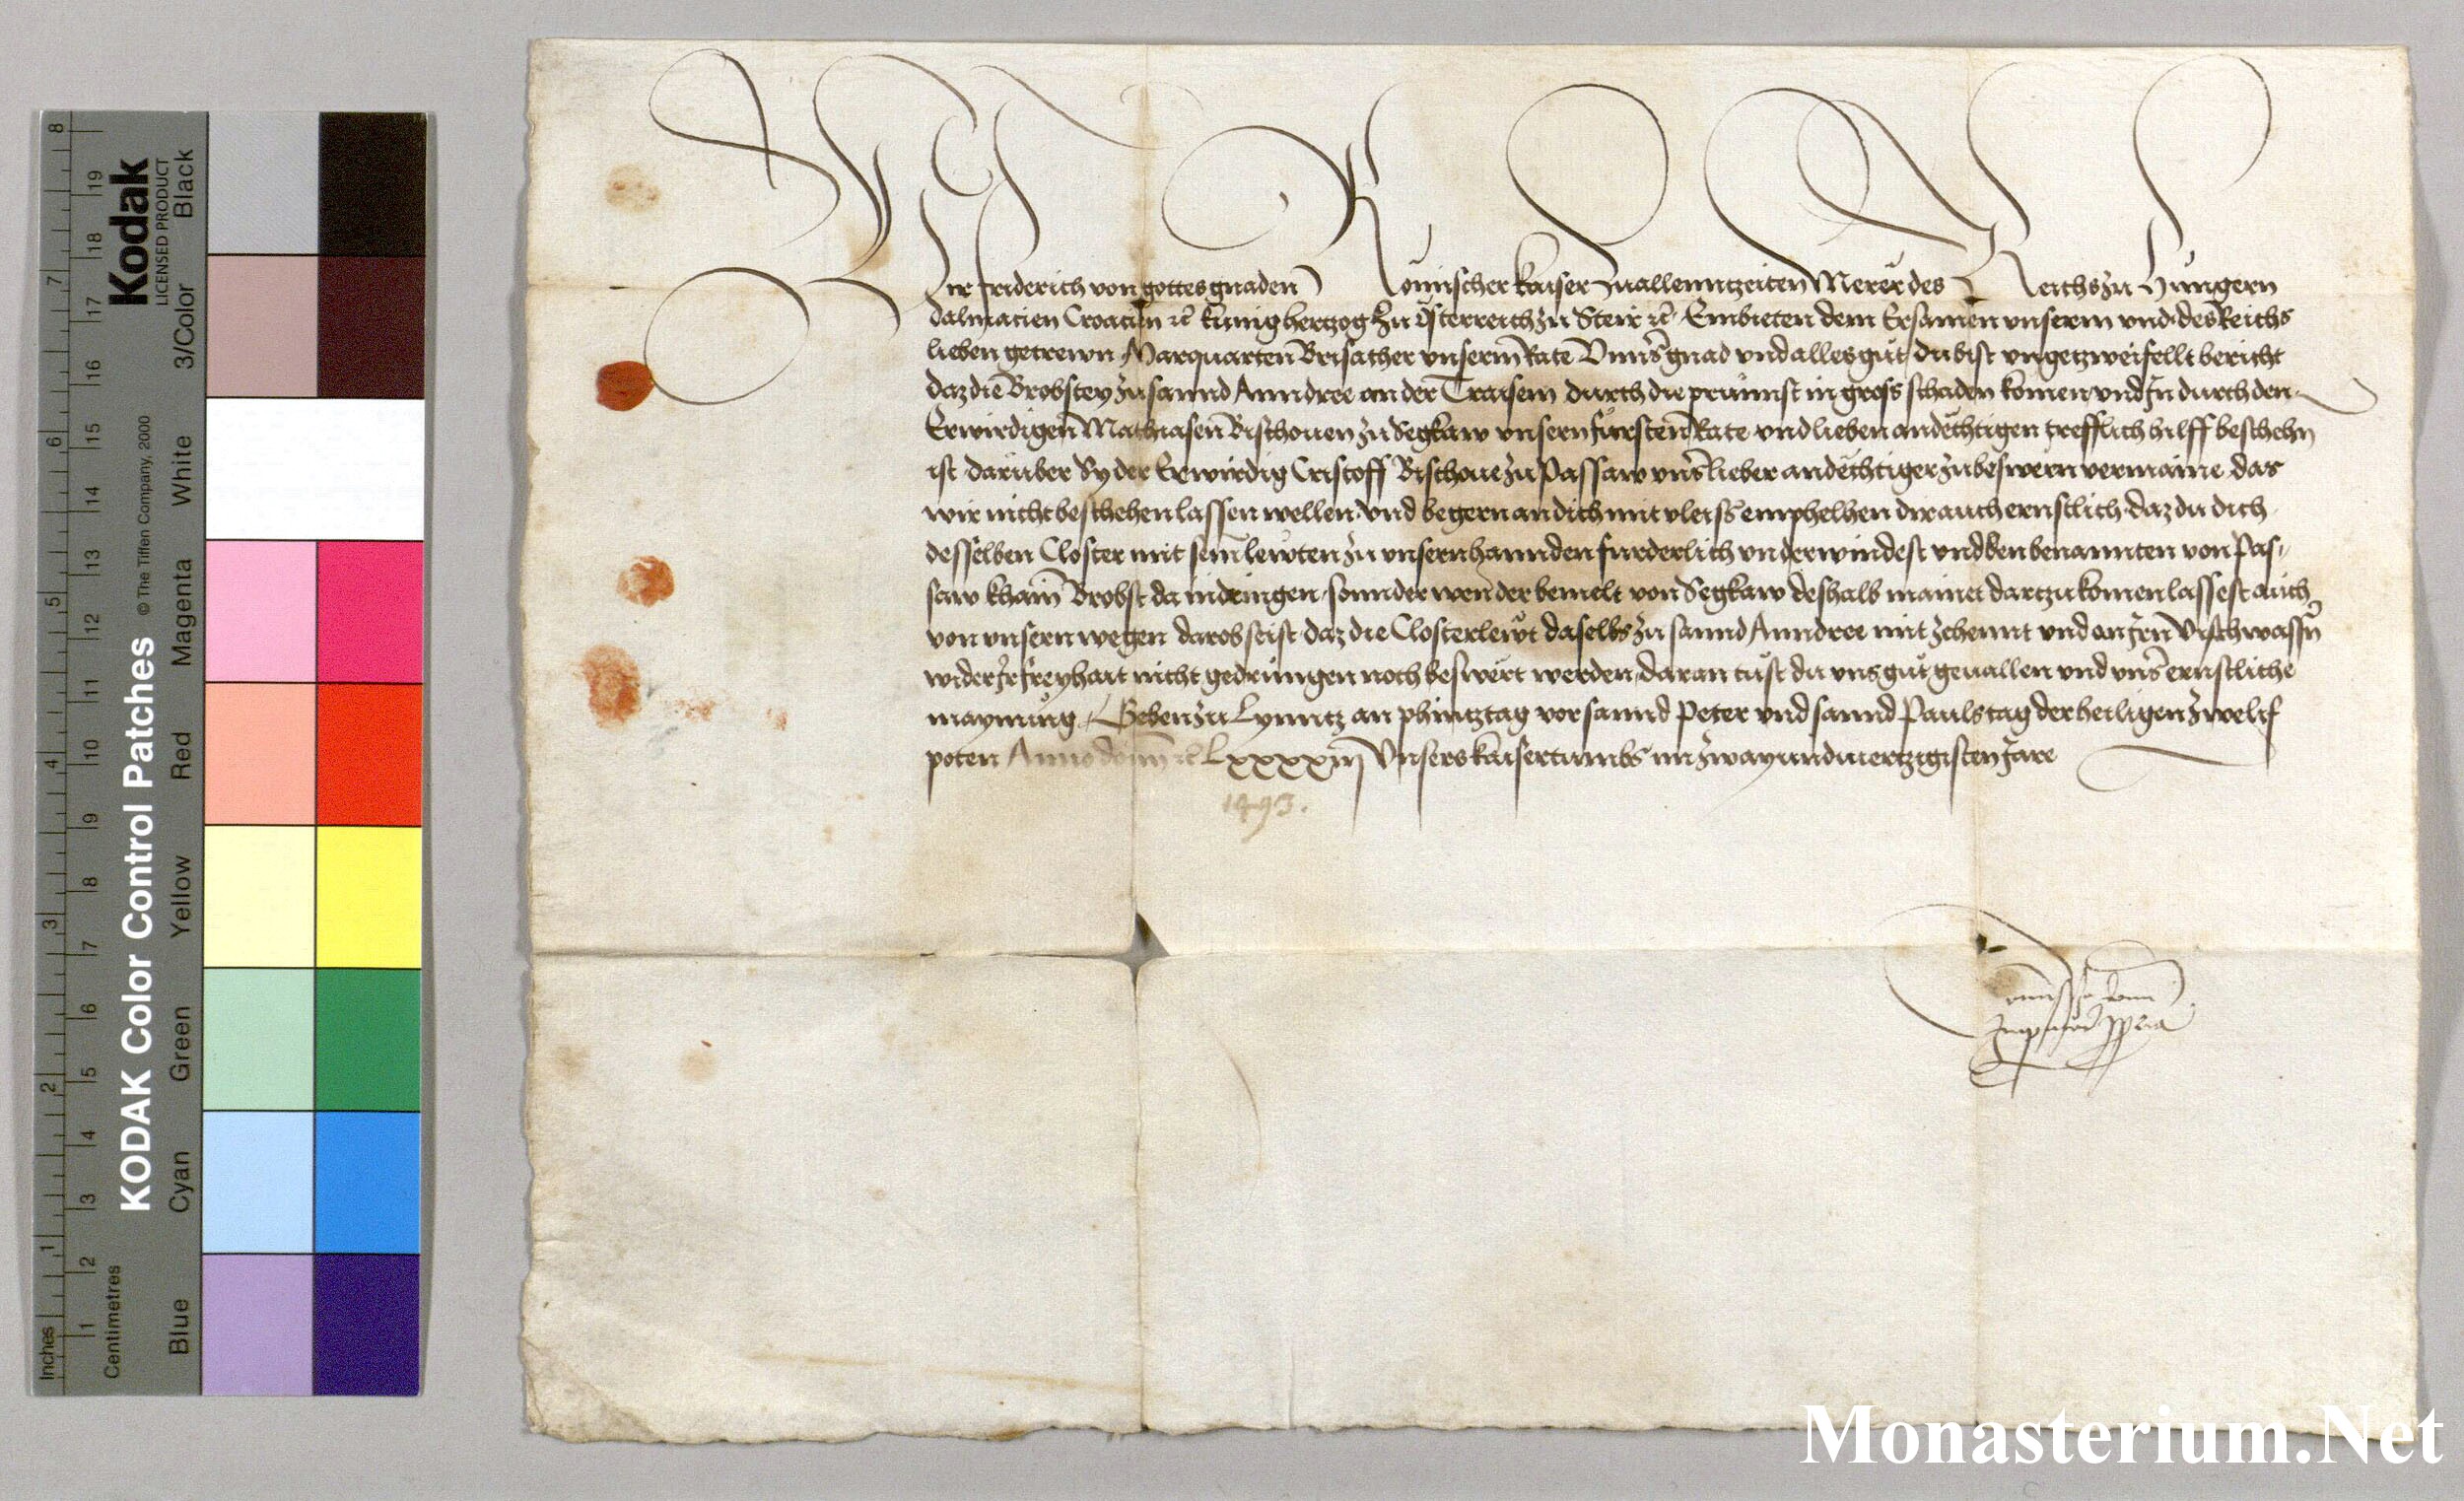 Wir Friderich von gottes gnaden Römischer Kaiser zu allenntzeiten Merer des Reichs zu Hungern
Dalmacien Croacien ꝛc̃ Kunig hertzog zu Österreich zu Steir ꝛc̃ Embieten dem Ersamen vnserm vnd des Reichs
lieben getrewn Marquarten Brisacher vnserm Rate Vnnsˀ gnad vnd alles gůt du bist vngetzweifellt bericht
daz die Brobstey zu sannd Anndree an der Traisem durch die prunnst in gross schaden komen vnd In durch den
Erwirdigen Mathiasen Bischouen zu Segkaw vnsern fürsten Rate vnd lieben andechtigen trefflich hilff beschehn
ist daruber Sy der Erwirdig Cristoff Bischoue zu Passaw vnnsˀ lieber andechtiger zu beswern vermaine das
wir nicht beschehen lassen wellen vnd begern an dich mit vleiss emphelhen dir auch ernstlich daz du dich
desselben Closter mit sein lewten zu vnsern hannden furderlich vnderwindest vnd den benannten von Pas-
saw khain Brobst da indringen sonnder wen der bemelt von Segkaw deshalb mainet dartzu komen lassest auch
von vnsern wegen darob seist daz die Closterlewt daselbs zu sannd Anndree mit zehennt vnd an Irn Vischwassˀn
wider Ir freyhait nicht gedrungen noch beswert werden, daran tust du vns gůt geuallen vnd vnnsˀ ernstliche
maynung, Geben zu Lynntz an phintztag vor sannd Peter vnd sannd Pauls tag der heiligen zwelf
poten Anno domini ꝛc̃ Lxxxxiij Vnsers kaisertumbs im zwayundviertzigisten Jare
1493.
Kodak
LICENSED PRODUCT
KODAK Color Control Patches
© The Tiffen Company, 2000
Black
3/Color
White
Magenta
Red
Yellow
Green
Cyan
Blue
Inches
1 2 3 4 5 6 7 8
Centimetres
1 2 3 4 5 6 7 8 9 10 11 12 13 14 15 16 17 18 19
Monasterium.Net